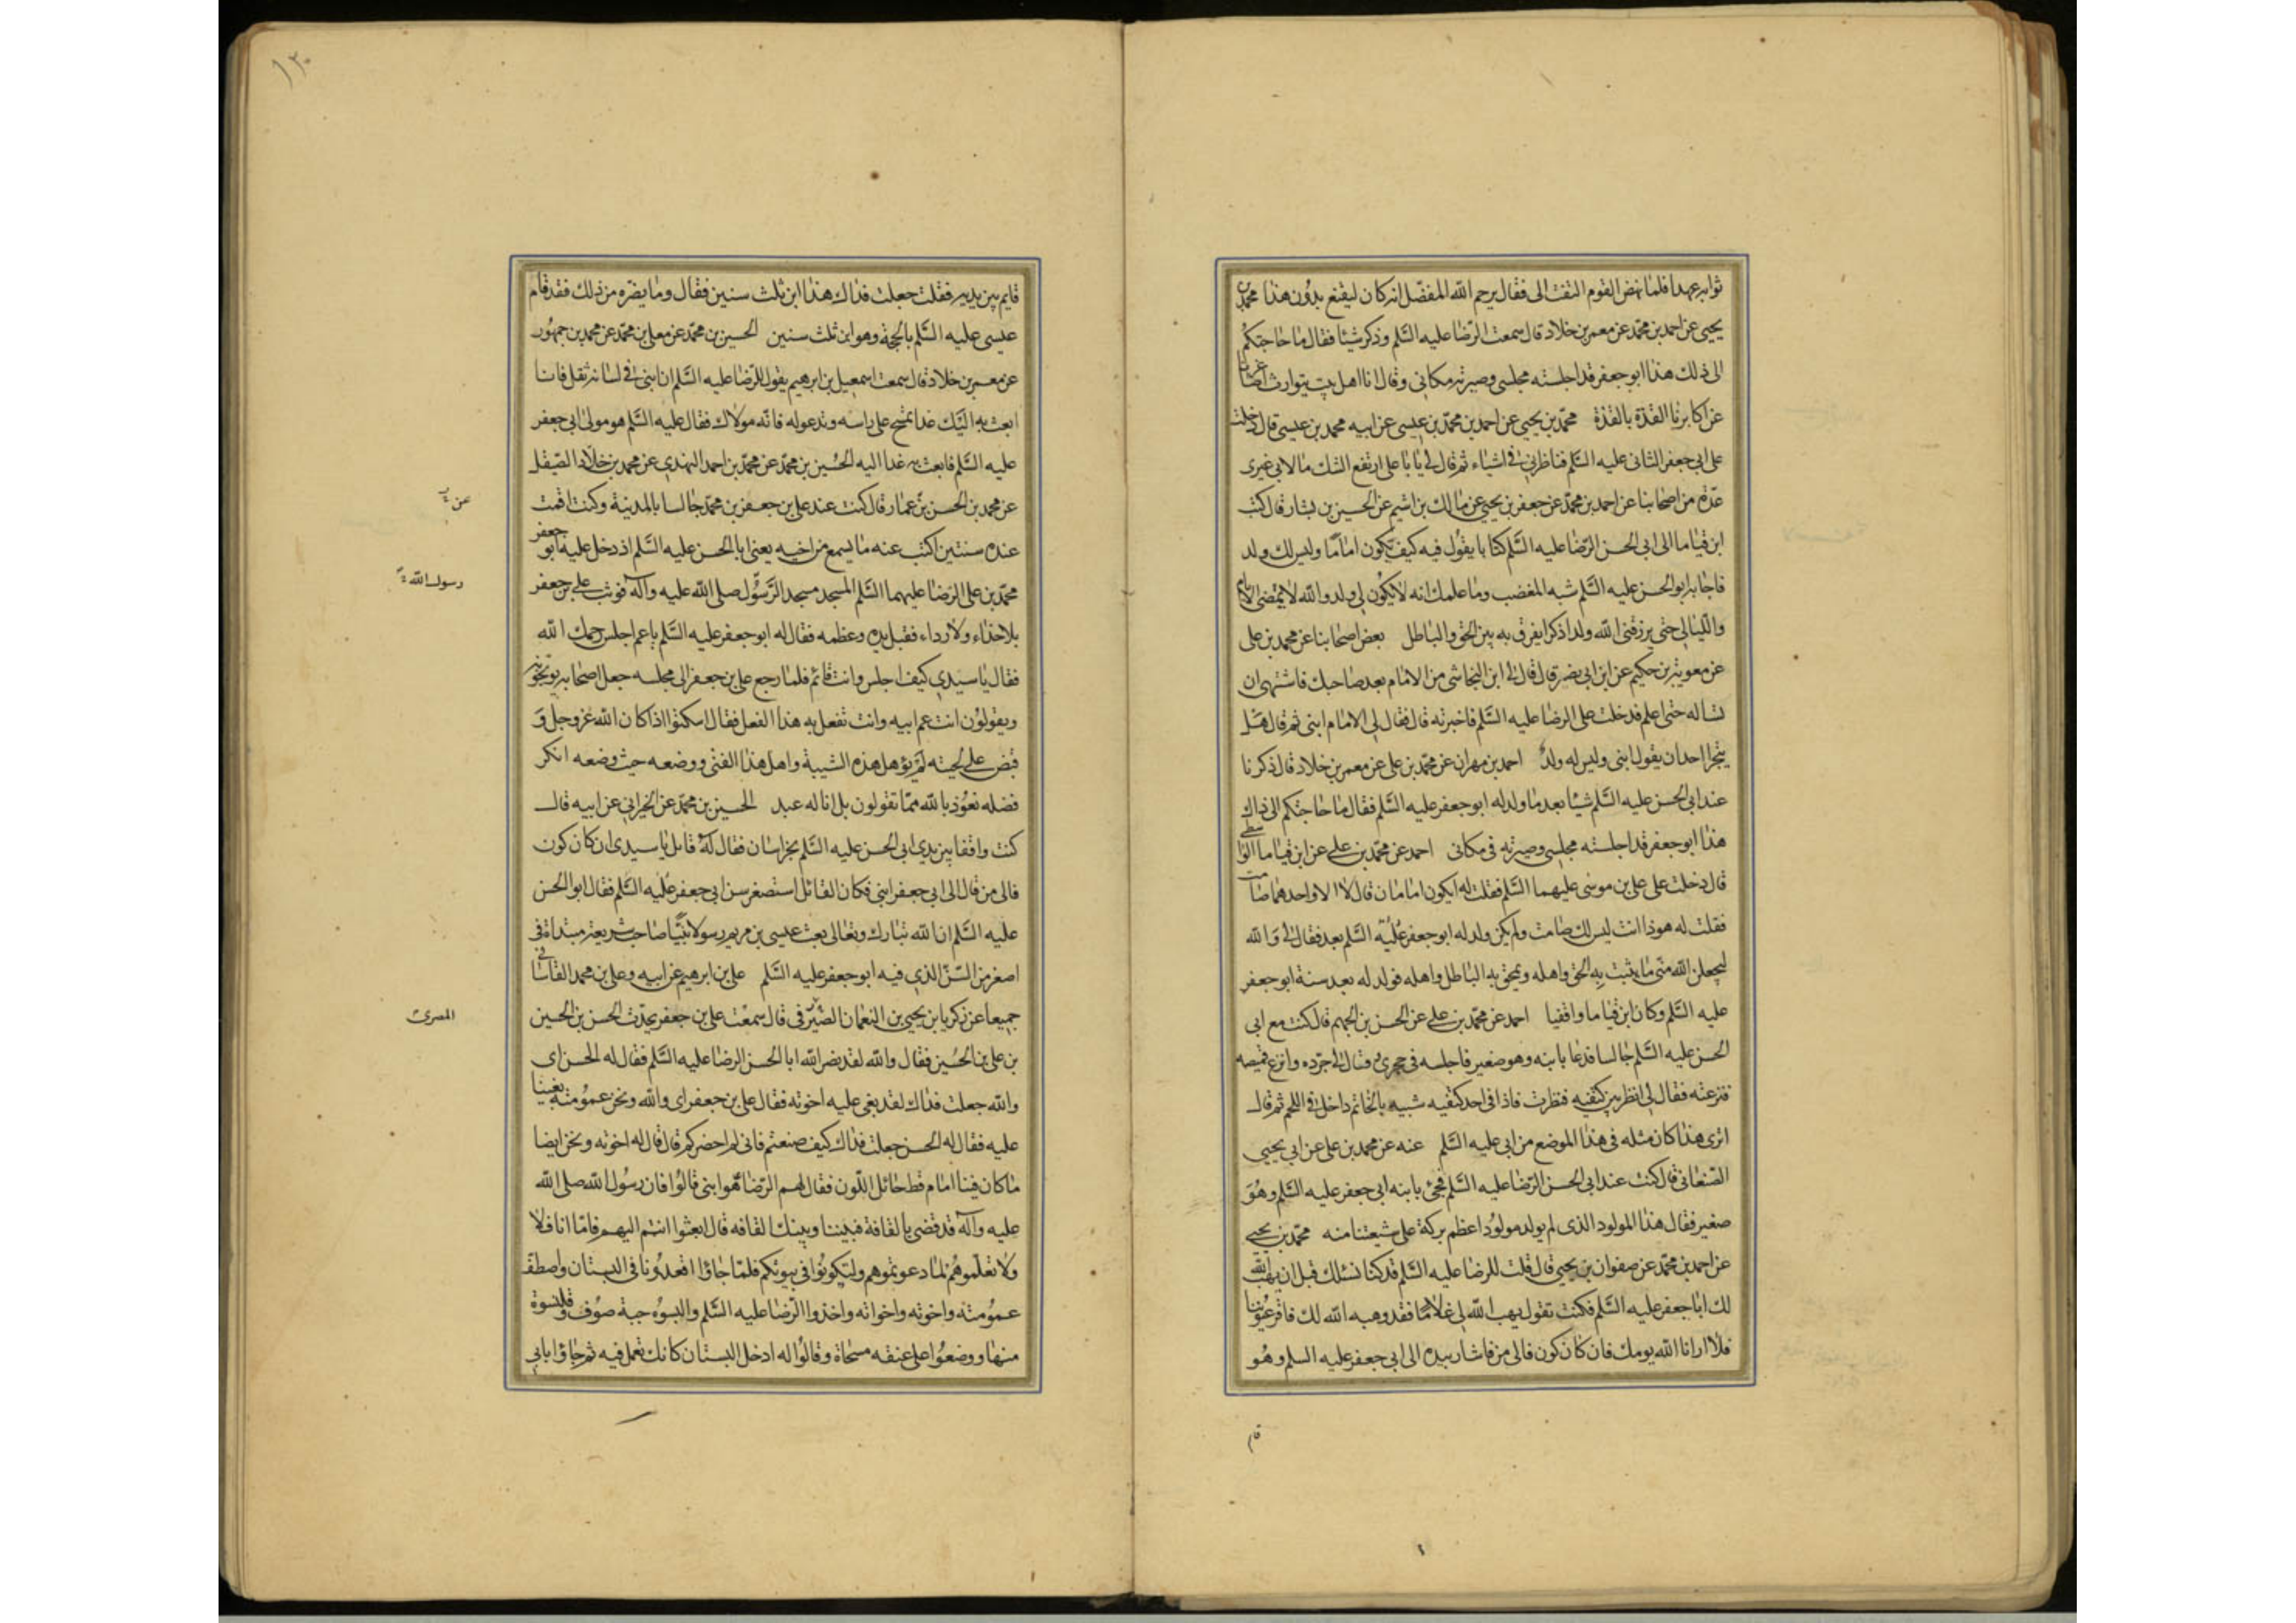 ثوابه عهدا فلما نهض القوم التفت الى فقال يرحم الله المفضل انه كان ليقنع بدون هذا محمد بن
يحيى عن احمد بن محمد عن معمر بن خلاد قال سمعت الرضا عليه السلم وذكر شيئا فقال ما حاجتكم
الى ذلك هذا ابو جعفر قد اجلسته مجلسى وصيرته مكانى وقال انا اهل بيت يتوارث اصاغرنا
عن اكابرنا القذة بالقذة محمد بن يحيى عن احمد بن محمد بن عيسى عن ابيه محمد بن عيسى قال دخلت
على ابى جعفر الثانى عليه السلم فناظرنى فى اشياء ثم قال لى يا با على ارتفع الشك ما لابى غيرى
عدة من اصحابنا عن احمد بن محمد عن جعفر بن يحيى عن مالك بن اشيم عن الحسين بن بشار قال كتب
ابن قياما الى ابى الحسن الرضا عليه السلم كتابا يقول فيه كيف تكون اماما وليس لك ولد
فاجابه ابو الحسن عليه السلم شبه المغضب وما علمك انه لا يكون لى ولد والله لا يمضى الايام
والليالى حتى يرزقنى الله ولدا ذكرا يفرق به بين الحق والباطل بعض اصحابنا عن محمد بن على
عن معوية بن حكيم عن ابن ابى نصر قال قال لى ابن النجاشى من الامام بعد صاحبك فاشتهى ان
تسأله حتى اعلم فدخلت على الرضا عليه السلم فاخبرته قال فقال لى الامام ابنى ثم قال هل
يتجرا احد ان يقول ابنى وليس له ولد احمد بن مهران عن محمد بن على عن معمر بن خلاد قال ذكرنا
عند ابى الحسن عليه السلم شيئا بعد ما ولد له ابو جعفر عليه السلم فقال ما حاجتكم الى ذاك
هذا ابو جعفر قد اجلسته مجلسى وصيرته فى مكانى احمد عن محمد بن على عن ابن قياما الواسطى
قال دخلت على على بن موسى عليهما السلم فقلت له ايكون امامان قال لا الا واحدهما صامت
فقلت له هو ذا انت ليس لك صامت ولم يكن ولد له ابو جعفر عليه السلم بعد فقال لى والله
ليجعلن الله منى ما يثبت به الحق واهله ويمحق به الباطل واهله فولد له بعد سنة ابو جعفر
عليه السلم وكان ابن قياما واقفيا احمد عن محمد بن على عن الحسن بن الجهم قال كنت مع ابى
الحسن عليه السلم جالسا فدعا بابنه وهو صغير فاجلسه فى حجرى فقال لى جرده وانزع قميصه
فنزعته فقال لى انظر بين كتفيه فنظرت فاذا فى احد كتفيه شبيه بالخاتم داخل فى اللحم ثم قال
اترى هذا كان مثله فى هذا الموضع من ابى عليه السلم عنه عن محمد بن على عن ابى يحيى
الصنعانى قال كنت عند ابى الحسن الرضا عليه السلم فجئ بابنه ابى جعفر عليه السلم وهو
صغير فقال هذا المولود الذى لم يولد مولود اعظم بركة على شيعتنا منه محمد بن يحيى
عن احمد بن محمد عن صفوان بن يحيى قال قلت للرضا عليه السلم قد كنا نسئلك قبل ان يهب الله
لك ابا جعفر عليه السلم فكنت تقول يهب الله لى غلاما فقد وهبه الله لك فاقر عيوننا
فلا ارانا الله يومك فان كان كون فالى من فاشار بيده الى ابى جعفر عليه السلم وهو
قام
١٣٠
قايم بين يديه فقلت جعلت فداك هذا ابن ثلث سنين فقال وما يضره من ذلك فقد قام
عيسى عليه السلم بالحجة وهو ابن ثلث سنين الحسين بن محمد عن معلى بن محمد عن محمد بن جمهور
عن معمر بن خلاد قال سمعت اسمعيل بن ابرهيم يقول للرضا عليه السلم ان ابنى فى لسانه ثقل فانا
ابعث به اليك غدا تمسح على راسه وتدعو له فانه مولاك فقال عليه السلم هو مولى ابى جعفر
عليه السلم فابعث به غدا اليه الحسين بن محمد عن محمد بن احمد النهدى عن محمد بن خلاد الصيقل
عن محمد بن الحسن بن عمار قال كنت عند على بن جعفر بن محمد جالسا بالمدينة وكنت اقمت
عنده سنتين اكتب عنه ما يسمع من اخيه يعنى ابا الحسن عليه السلم اذ دخل عليه ابو جعفر
محمد بن على الرضا عليهما السلم المسجد مسجد الرسول صلى الله عليه وآله فوثب على بن جعفر
رسول الله
بلا حذاء ولا رداء فقبل يده وعظمه فقال له ابو جعفر عليه السلم يا عم اجلس رحمك الله
فقال يا سيدى كيف اجلس وانت قائم فلما رجع على بن جعفر الى مجلسه جعل اصحابه يوبخونه
ويقولون انت عم ابيه وانت تفعل به هذا الفعل فقال اسكتوا اذا كان الله عز وجل و
قبض على لحيته لم يؤهل هذه الشيبة واهل هذا الفتى ووضعه حيث وضعه انكر
فضله نعوذ بالله مما تقولون بل انا له عبد الحسين بن محمد عن الخيرانى عن ابيه قال
كنت واقفا بين يدى ابى الحسن عليه السلم بخراسان فقال له قائل يا سيدى ان كان كون
فالى من قال الى ابى جعفر ابنى فكان القائل استصغر سن ابى جعفر عليه السلم فقال ابو الحسن
عليه السلم ان الله تبارك وتعالى بعث عيسى بن مريم رسولا نبيا صاحب شريعة مبتداة فى
اصغر من السن الذى فيه ابو جعفر عليه السلم على بن ابرهيم عن ابيه وعلى بن محمد القاسانى
جميعا عن زكريا بن يحيى بن النعمان الصيرفى قال سمعت على بن جعفر يحدث الحسن بن الحسين
المصرى
بن على بن الحسين فقال والله لقد نصر الله ابا الحسن الرضا عليه السلم فقال له الحسن اى
والله جعلت فداك لقد بغى عليه اخوته فقال على بن جعفر اى والله ونحن عمومته بغينا
عليه فقال له الحسن جعلت فداك كيف صنعتم فانى لم احضركم قال قال له اخوته ونحن ايضا
ما كان فينا امام قط حائل اللون فقال لهم الرضا هو ابنى قالوا فان رسول الله صلى الله
عليه وآله قد قضى بالقافة فبيننا وبينك القافه قال ابعثوا انتم اليهم فاما انا فلا
ولا تعلموهم لما دعوتموهم ولتكونوا فى بيوتكم فلما جاؤا اقعدونا فى البستان واصطف
عمومته واخوته واخواته واخذوا الرضا عليه السلم والبسوه جبة صوف وقلنسوة
منها ووضعوا على عنقه مسحاة وقالوا له ادخل البستان كانك تعمل فيه ثم جاؤا بابى